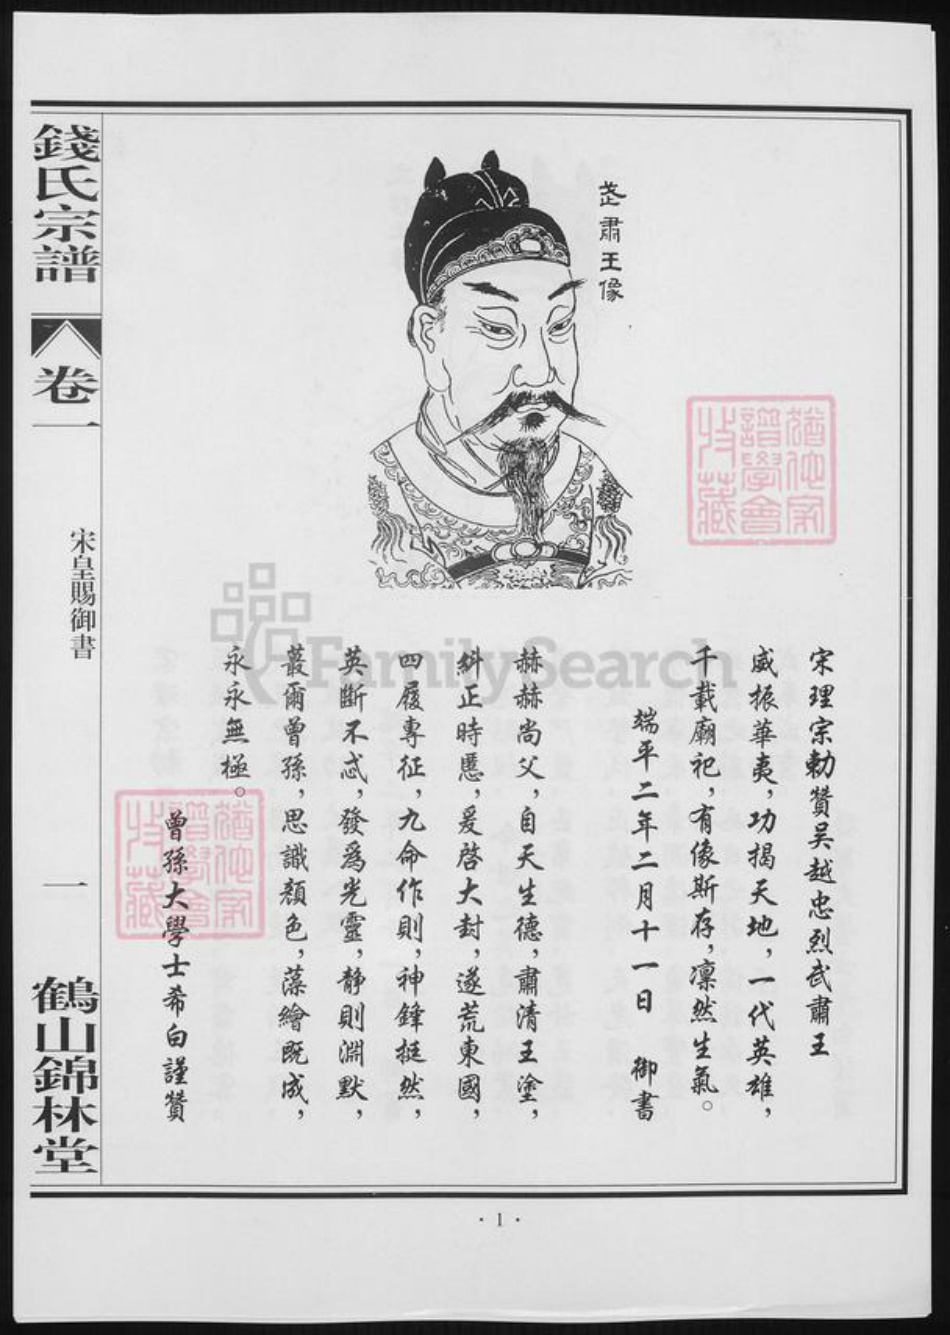 武肅王像
宋理宗勅贊吳越忠烈武肅王
威振華夷，功揭天地，一代英雄，
千載廟祀，有像斯存，凜然生氣。
端平二年二月十一日 御書
赫赫尚父，自天生德，肅清王塗，
糾正時慝，爰啓大封，遂荒東國，
四履專征，九命作則，神鋒挺然，
英斷不忒，發爲光靈，静則淵默，
藂爾曾孫，思識顔色，藻繪既成，
永永無極。
曾孫大學士希白謹贊
錢氏宗譜
卷一
宋皇賜御書
一
鶴山錦林堂
·1·
FamilySearch
譜學會
收藏
譜學會
收藏